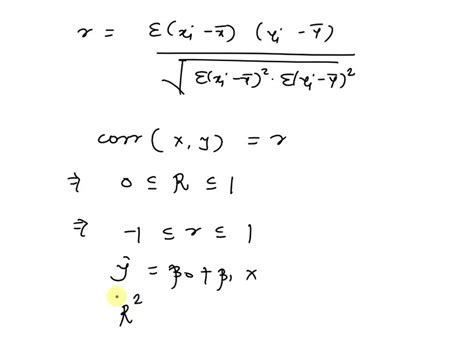 r = Σ(xᵢ - x̄) (yᵢ - ȳ) / √Σ(xᵢ - x̄)² · Σ(yᵢ - ȳ)²
corr(x, y) = r
⇒ 0 ≤ R ≤ 1
⇒ -1 ≤ r ≤ 1
ŷ = β₀ + β₁ x
R²